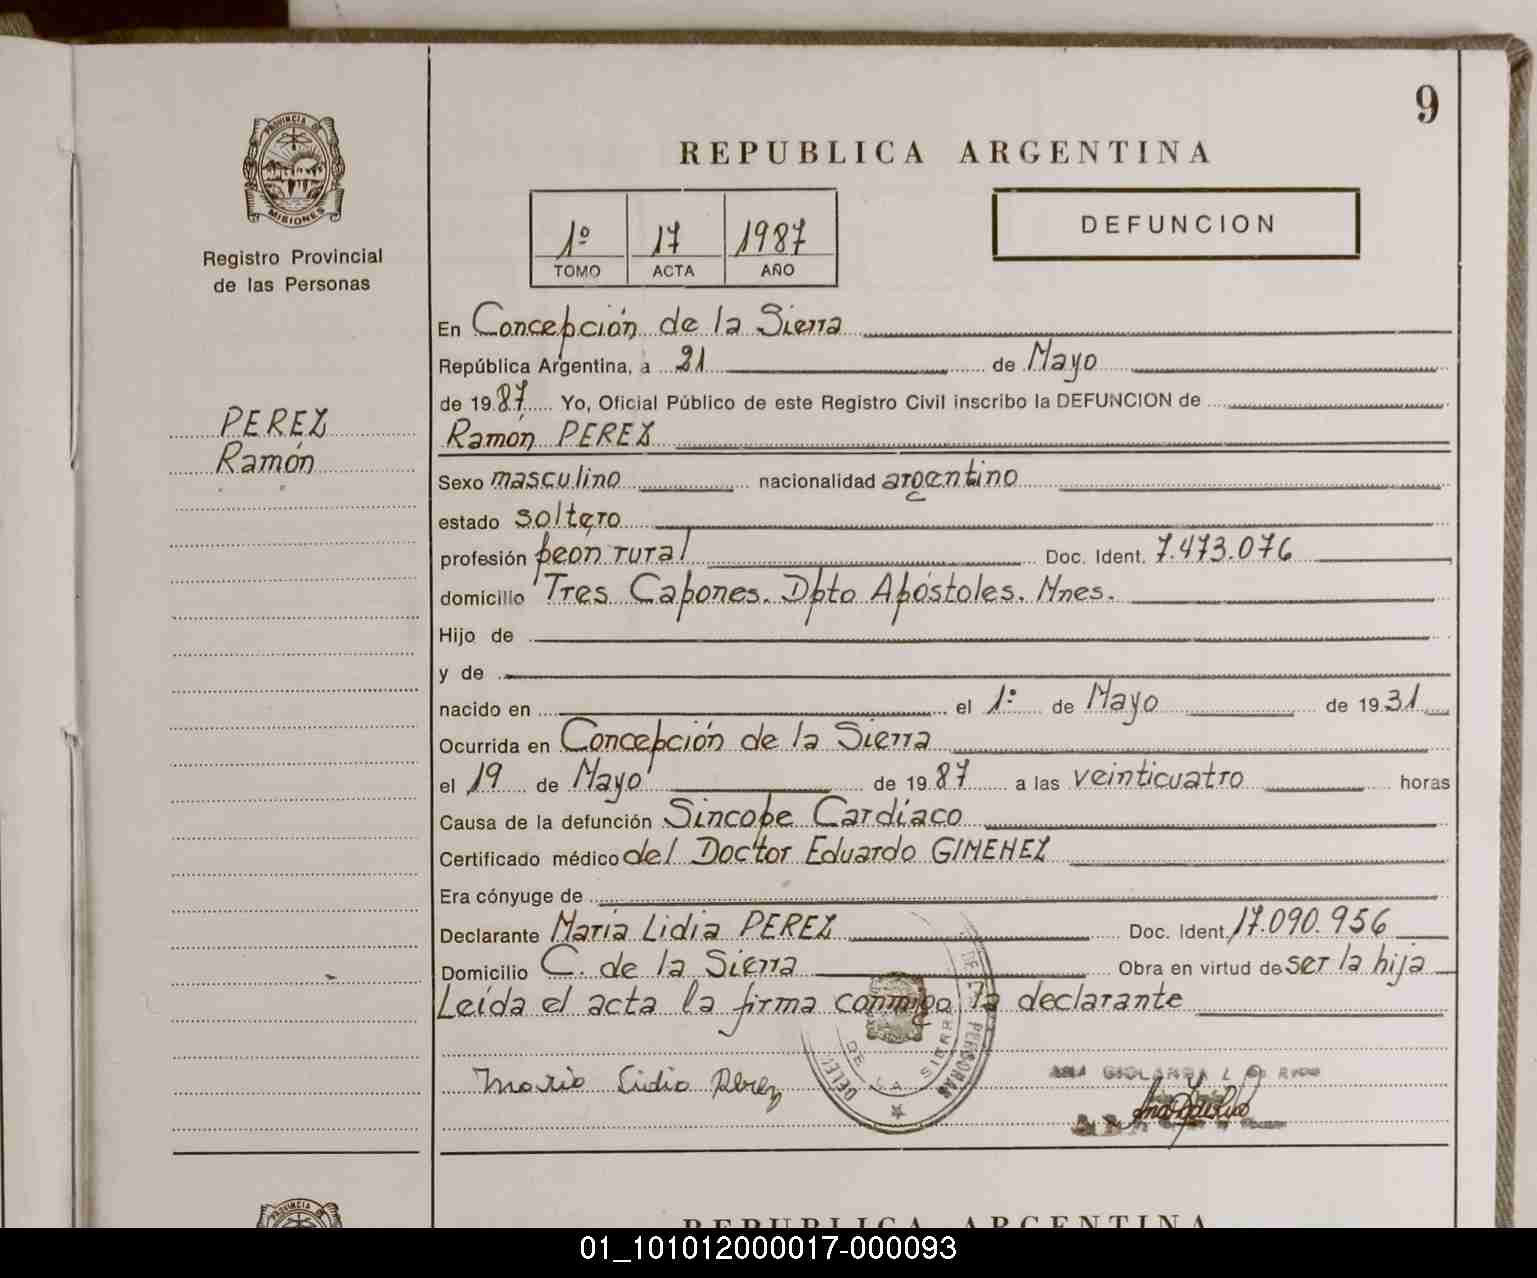 9
PROVINCIA DE
MISIONES
Registro Provincial
de las Personas
REPUBLICA ARGENTINA
1º 17 1987
TOMO ACTA AÑO
DEFUNCION
PEREZ
Ramón
En Concepción de la Sierra
República Argentina, a 21 de Mayo
de 1987 Yo, Oficial Público de este Registro Civil inscribo la DEFUNCION de
Ramón PEREZ
Sexo masculino nacionalidad argentino
estado soltero
profesión peón rural Doc. Ident. 7.473.076
domicilio Tres Capones. Dpto Apóstoles. Mnes.
Hijo de
y de
nacido en el 1º de Mayo de 1931
Ocurrida en Concepción de la Sierra
el 19 de Mayo de 1987 a las veinticuatro horas
Causa de la defunción Sincope Cardíaco
Certificado médico del Doctor Eduardo GIMENEZ
Era cónyuge de
Declarante María Lidia PEREZ Doc. Ident. 17.090.956
Domicilio C. de la Sierra Obra en virtud de ser la hija
Leída el acta la firma conmigo la declarante
Maria Lidia Perez
DE LA SIERRA
REPUBLICA ARGENTINA
01_101012000017-000093